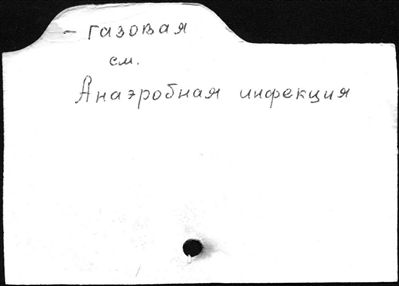 - газовая
см.
Анаэробная инфекция